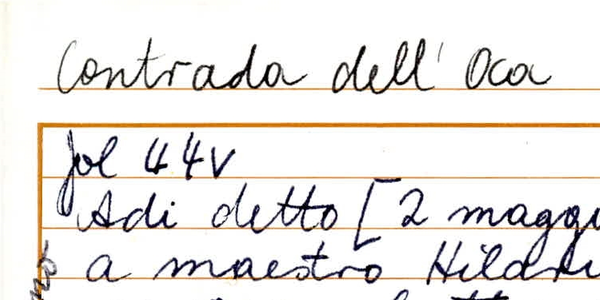 Contrada dell' Oca
fol 44v
Adi detto [2 maggi
a maestro Hilari